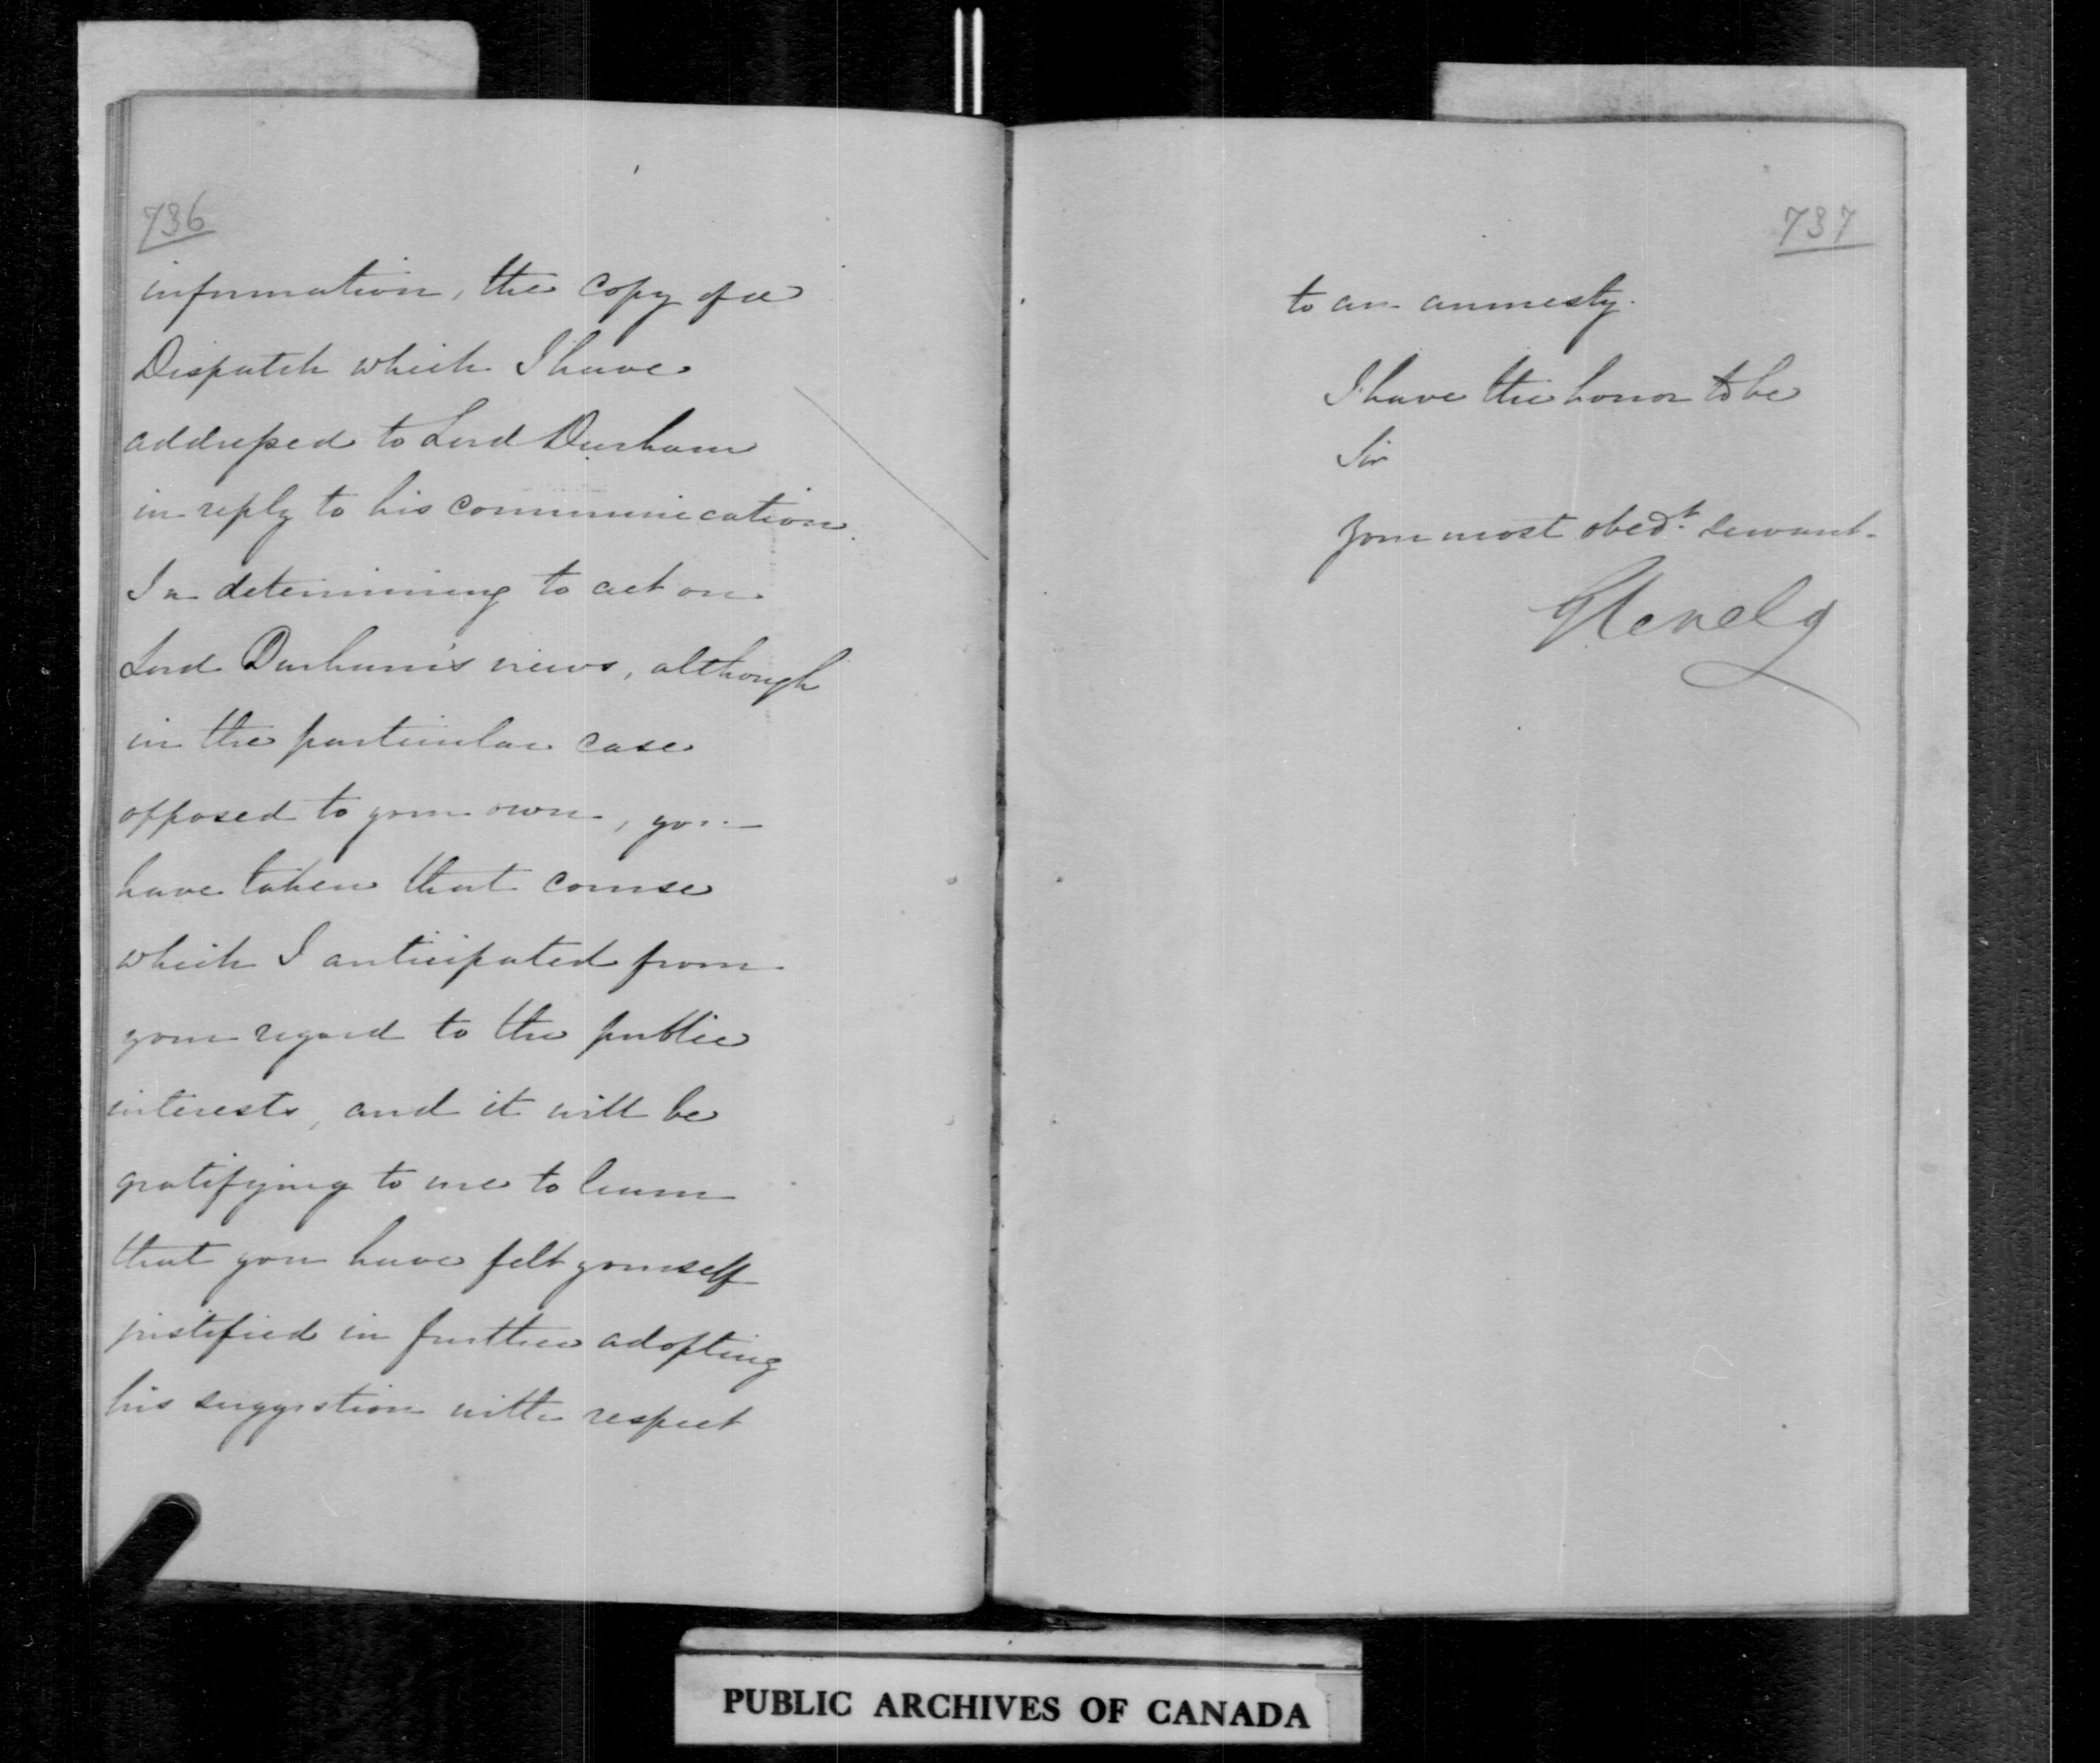 736
information, the copy of a
Dispatch which I have
addressed to Lord Durham
in reply to his communication.
In determining to act on
Lord Durham's views, although
in the particular case
opposed to your own, you
have taken that course
which I anticipated from
your regard to the public
interests, and it will be
gratifying to me to learn
that you have felt yourself
justified in further adopting
his suggestion with respect
737
to an amnesty.
I have the honor to be
Sir
Your most obedt. servant.
Glenelg
PUBLIC ARCHIVES OF CANADA